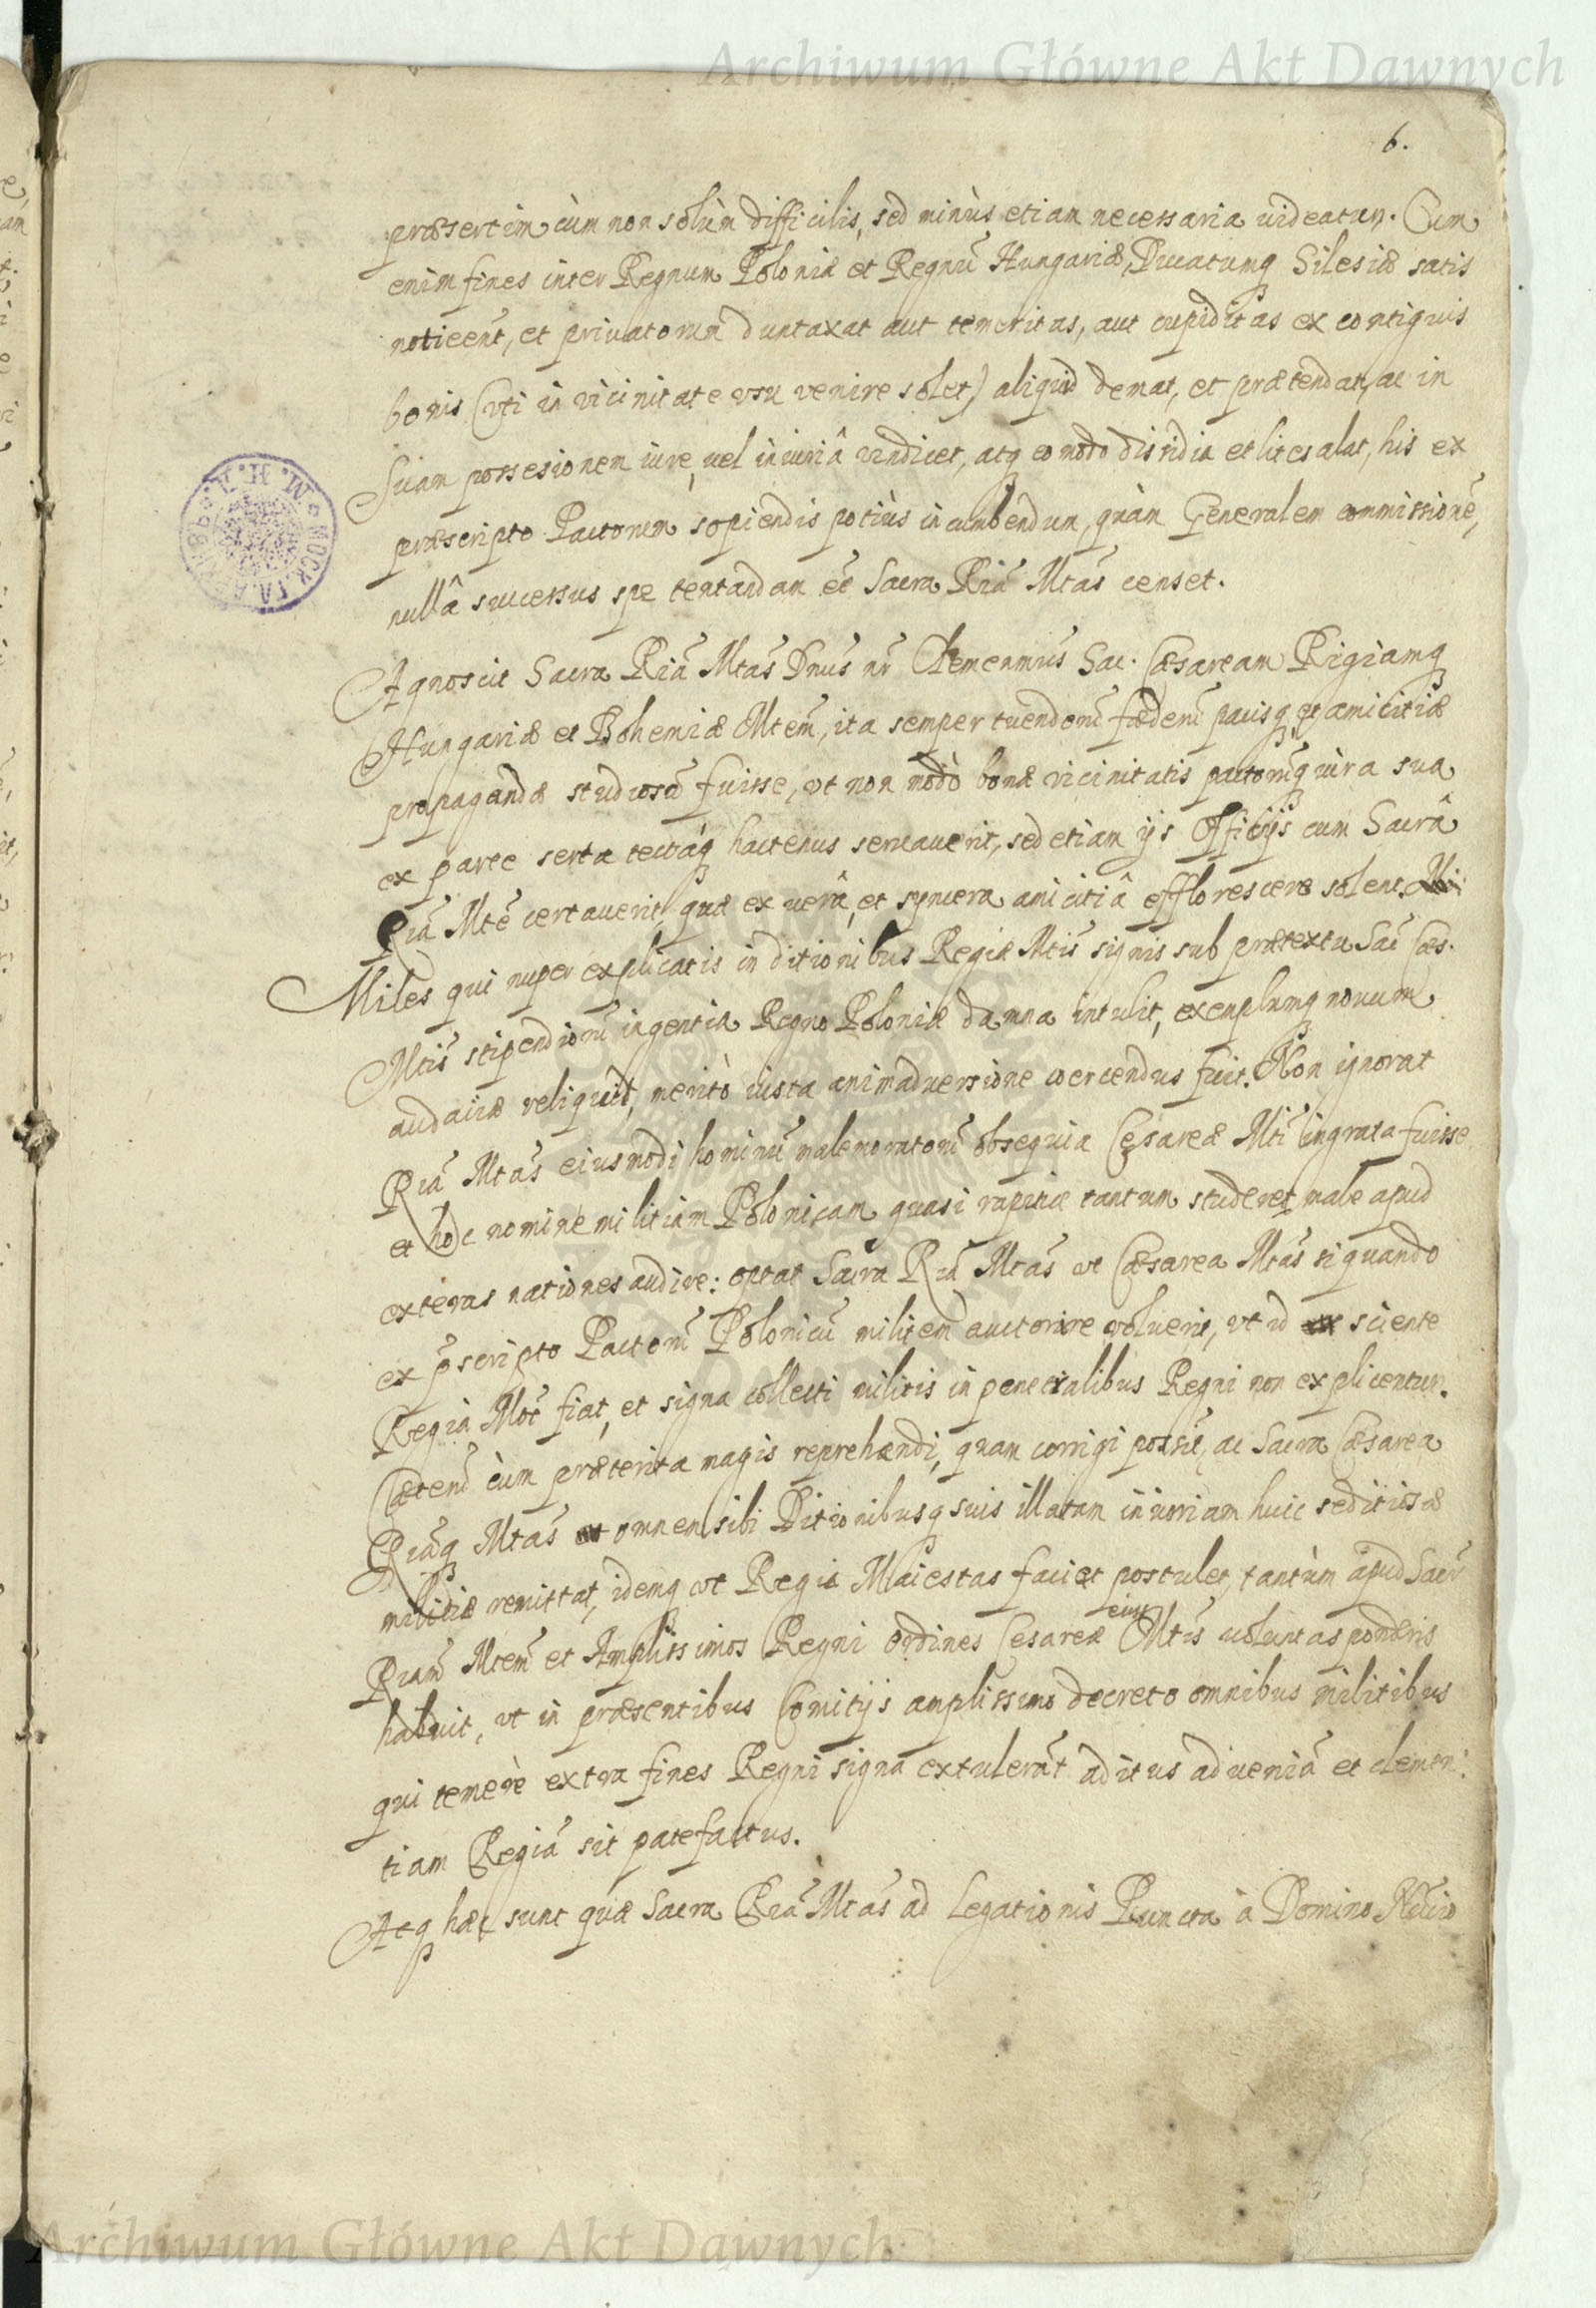 Archiwum Główne Akt Dawnych
6.
præsertim cùm non solùm difficilis, sed minùs etiam necessaria uideatur. Cum
enim fines inter Regnum Poloniæ et Regnũ Hungariæ, Ducatumq Silesiæ satis
noti eent, et priuatorum duntaxat aut temeritas, aut cupiditas ex contiguis
bonis (vti in vicinitate vsu venire solet) aliquid demat, et prætendat, ac in
suam possesionem iure, uel iniuriâ vindicet, atq eo modo disidia et lites alat, his ex
præscripto Pactorum sopiendis potiùs incumbendum, quàm Generalem commissionẽ,
nullâ successus spe tentandam eẽ Sacra Riã Mtas censet.
Agnoscit Sacra Riã Mtas Dnus nr Clemenmus Sac. Cæsaream Rigiamq
Hungariæ et Bohemiæ Mtem, ita semper tuendorũ fæderũ pacisq et amicitiæ
propagandæ studiosã fuisse, vt non modò bonæ vicinitatis pactorũq iùra sua
ex parte serta tectáq hactenus seruauerit, sed etiam ijs Officijs cum Sacrâ
Riã Mtẽ certauerit, quæ ex uerâ, et syncera amicitiâ efflorescere solent.
Miles qui nuper explicatis in ditionibus Regiæ Mtis signis sub prætextu Sac Cæs.
Mtis stipendiorũ ingentia Regno Poloniæ damna intulit, exemplumq nouum
audaciæ reliquit, meritò iusta animaduersione coercendus fuit. Non ignorat
Riã Mtas eiusmodi hominũ malemoratorũ obsequia Cesareæ Mti ingrata fuisse
et hoc nomine militiam Polonicam quasi rapinæ tantum studeret male apud
exteras nationes audire: optat Sacra Riã Mtas vt Cæsarea Mtas si quando
ex p̃scripto Pactorũ Polonicũ militem auctorire voluerit, vt id sciente
Regia Mte fiat, et signa collecti militis in penetralibus Regni non explicentur.
Cæterũ cùm præterita magis reprehendi, quam corrigi possũt, ac Sacra Cæsarea
Riáq Mtas omnem sibi Ditionibusq suis illatam iniuriam huic seditiosæ
militiæ remittat, idemq vt Regia Maiestas faciat postulet, tantùm apud Sacr
Riam Mtem et Amplissimos Regni Ordines Cesareæ eius Mtis uoluntas ponderis
habuit, vt in præsentibus Comitijs amplissimo decreto omnibus militibus
qui temerè extra fines Regni signa extulerãt aditus ad ueniã et clemen:
tiam Regiã sit patefactus.
Atq hæc sunt quæ Sacra Riã Mtas ad Legationis Puncta à Domino
Archiwum Główne Akt Dawnych